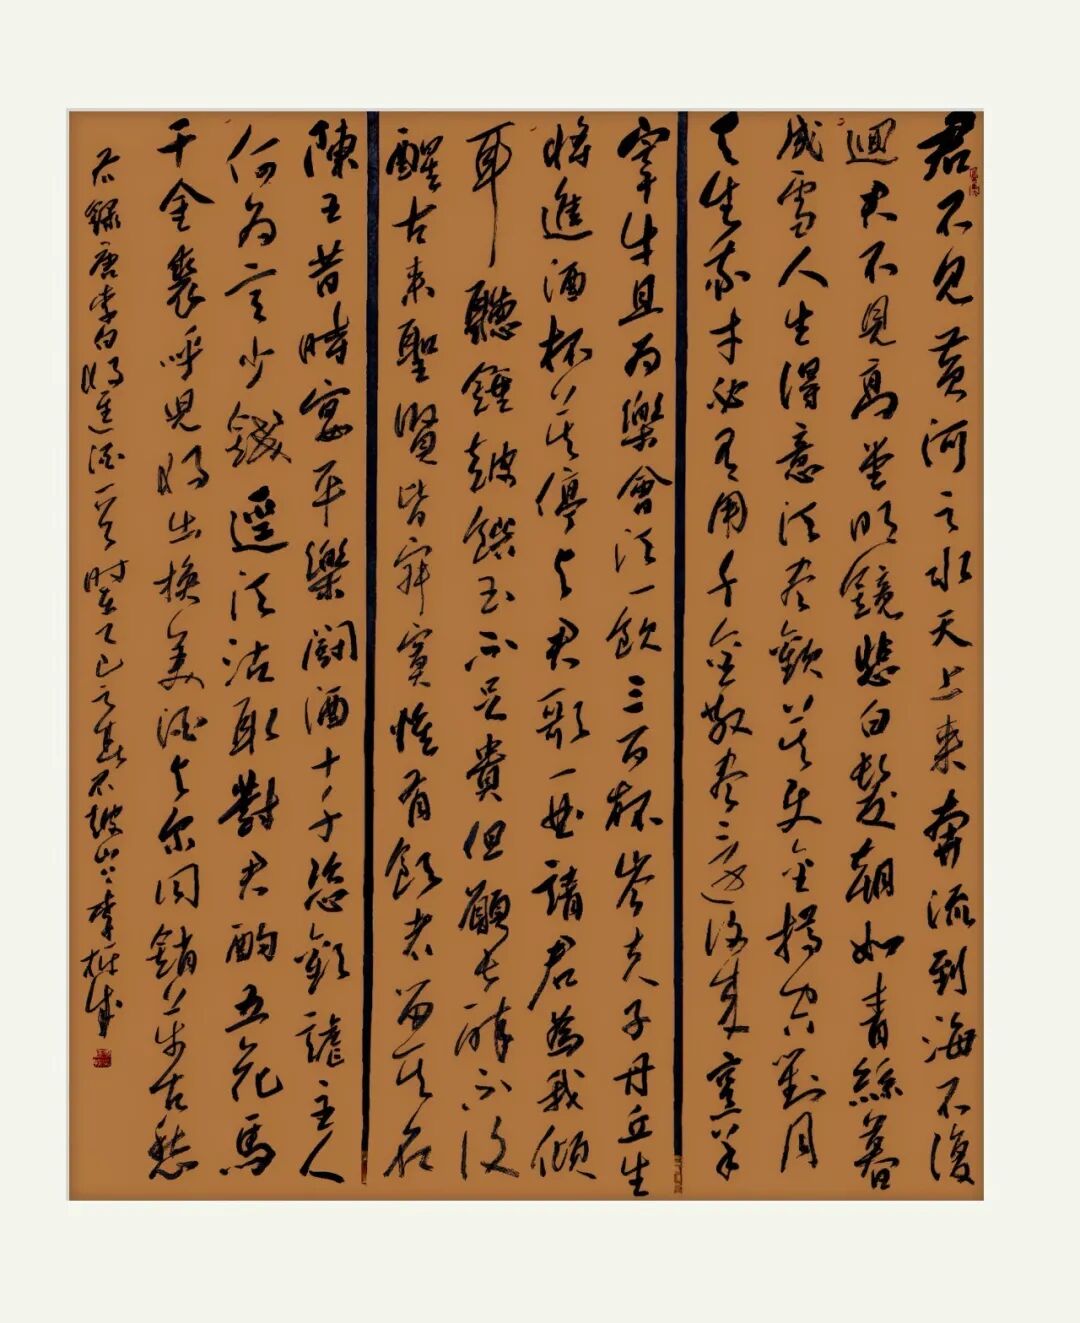 君不見黃河之水天上來奔流到海不復
迴君不見高堂明鏡悲白髮朝如青絲暮
成雪人生得意須盡歡莫使金樽空對月
天生我才必有用千金散盡還復來烹羊
宰牛且為樂會須一飲三百杯岑夫子丹丘生
將進酒杯莫停與君歌一曲請君為我傾
耳聽鐘鼓饌玉不足貴但願長醉不復
醒古來聖賢皆寂寞惟有飲者留其名
陳王昔時宴平樂鬥酒十千恣歡謔主人
何為言少錢逕須沽取對君酌五花馬
千金裘呼兒將出換美酒與爾同銷萬古愁
右錄唐李白將進酒一首時在乙巳之春於